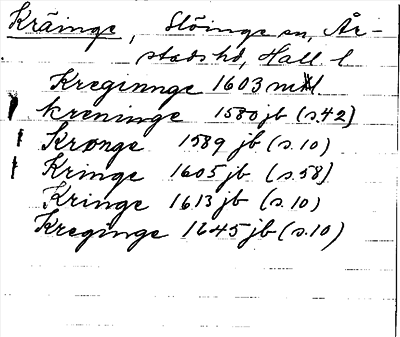 Kräinge, Slöinge sn, År-
stads hd, Hall. l
Kreginnge 1603 ml
Kreninge 1580 jb (s.42)
Kronge 1589 jb (s.10)
Kringe 1605 jb (s.58)
Kringe 1613 jb (s.10)
Kreginge 1645 jb (s.10)